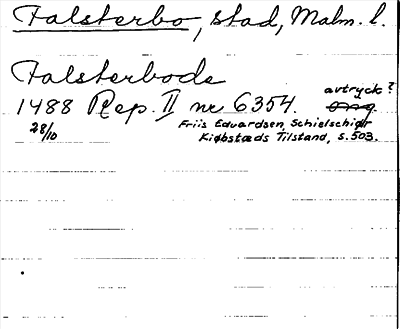 Falsterbo, stad, Malm. l.
Falsterbode
1488 Rep. II nr 6354. avtryck?
28/10 Friis Edvardsen, Schielschiør
Kiøbstæds Tilstand, s. 503.